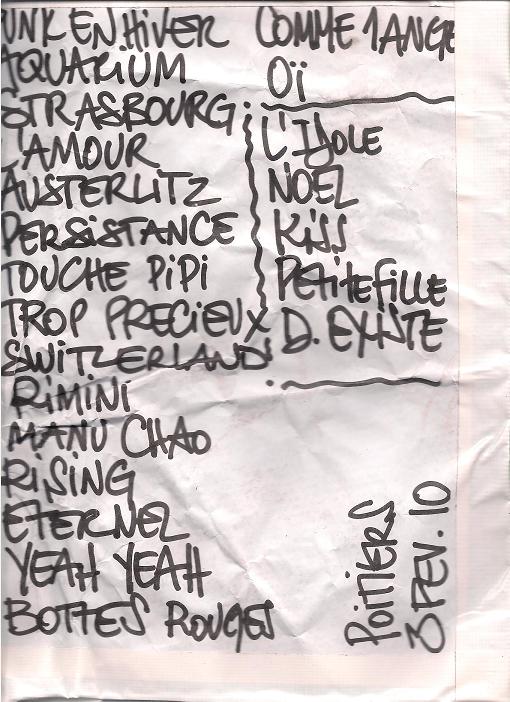 UNK EN HIVER
AQUARIUM
STRASBOURG
L'AMOUR
AUSTERLITZ
PERSiSTANCE
TOUCHE PiPi
TROP PRECiEUX
SWiTZERLAND
RiMiNi
MANU CHAO
RiSiNG
ETERNEL
YEAH YEAH
BOTTES ROUGES
COMME 1 ANGE
Oï
L'IDOLE
NOEL
KiSS
PETiTE FiLLE
D. EXiSTE
POiTiERS
3 FEV. 10